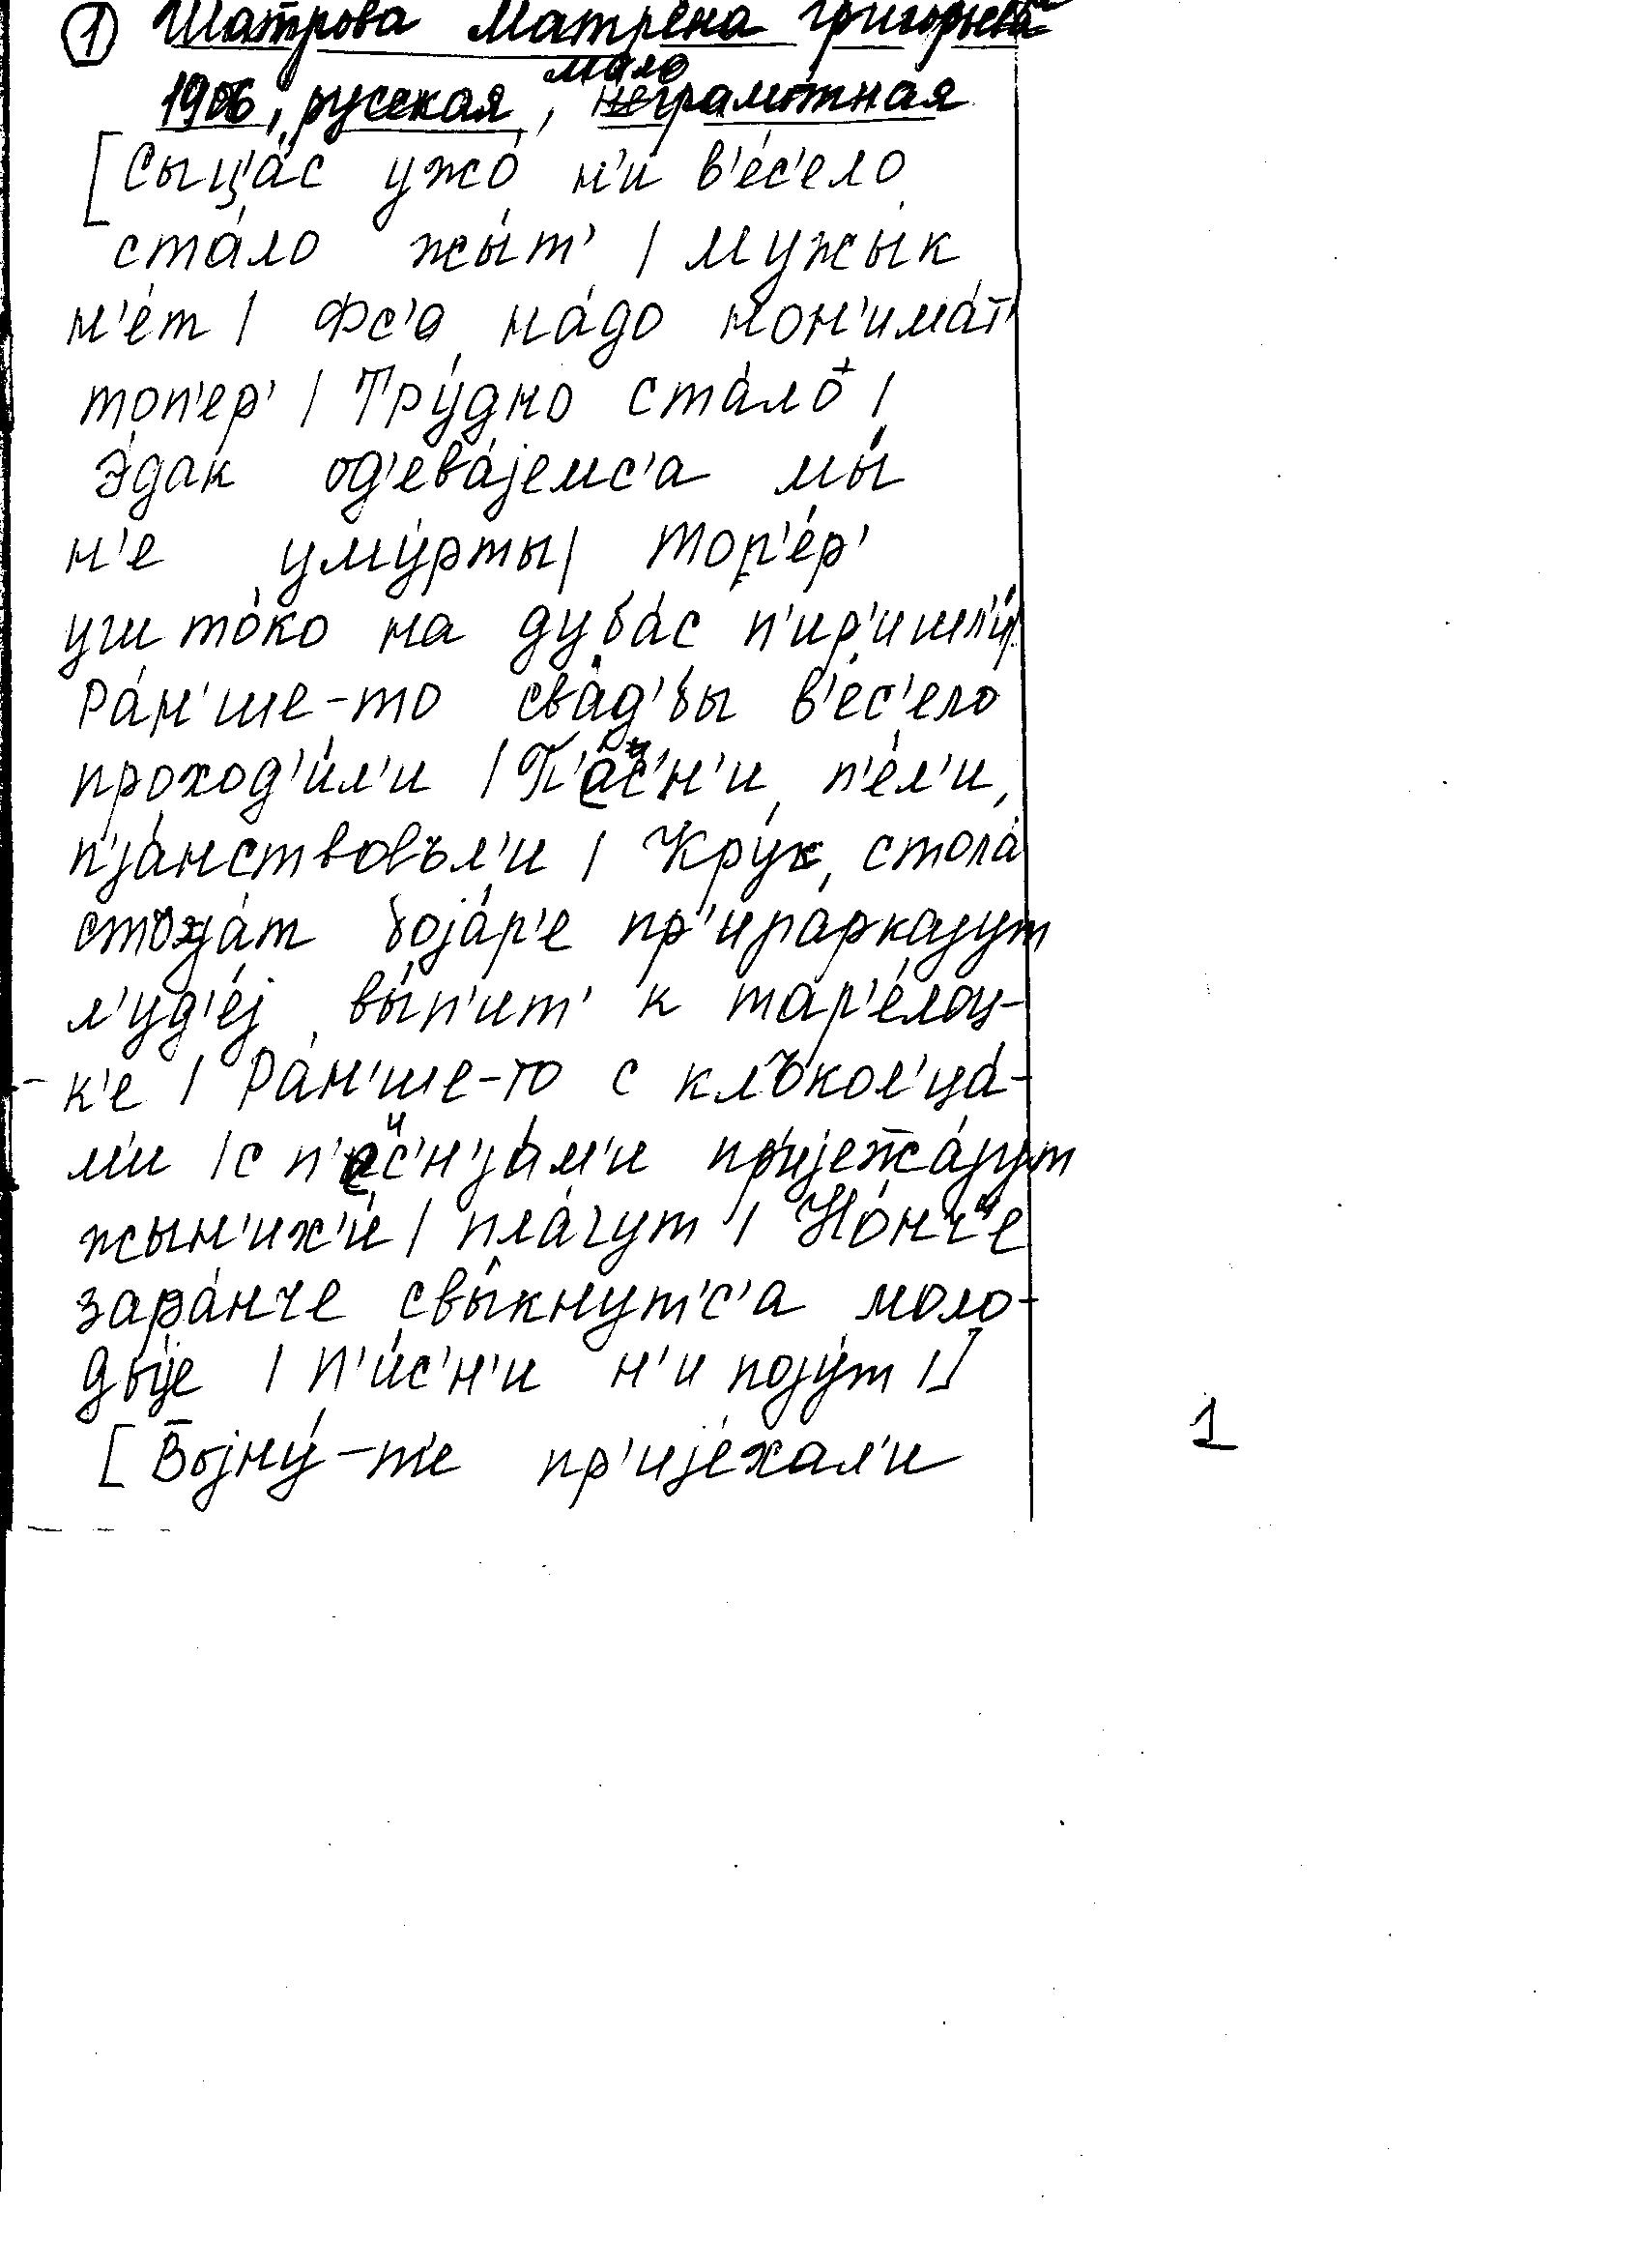 ① Шатрова Матрёна Григорьевна
1906, русская, малограмотная
[Сыц'а́с ужо́ н'и в'е́с'ело
ста́ло жы́т' | мужы́к
н'е́т | Фс'о на́до нон'има́т'
топ'ер' | Тру́дно ста́ло |
Э́дак од'ева́јемс'а мы́
н'е уму́рты | топ'е́р'
уш то́ко на дуба́с п'ир'ишл'и́
Ра́н'ше-то сва́д'бы в'е́с'ело
проход'и́л'и | П'и́с'н'и п'е́л'и,
п'jа́нствовъл'и | Кру́к стола́
стоjа́т боjа́р'е пр'ипаркаjут
л'уд'е́j вы́п'ит' к тар'е́лоц-
к'е | Ра́н'ше-то с клъкол'ца́-
м'и | с п'и́с'н'jам'и пр'иjетжа́jут
жын'их'и́ | пла́чут | Но́нч'е
зара́нче свы́кнут'с'а моло-
ды́jе | П'и́с'н'и н'и поjу́т |]
[Воjну́-т'е пр'иjе́хал'и
1